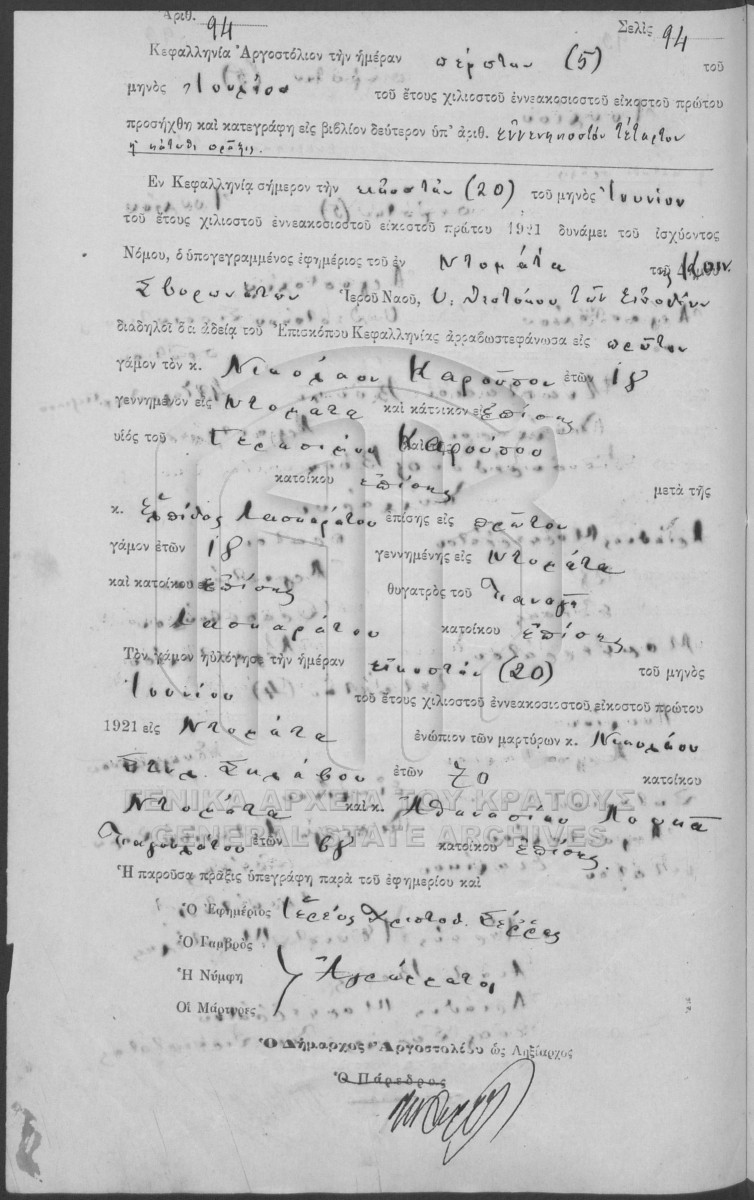 Ἀριθ. 94 Σελὶς 94
Κεφαλληνία Ἀργοστόλιον τὴν ἡμέραν πέμπτην (5) τοῦ
μηνὸς Ἰουλίου τοῦ ἔτους χιλιοστοῦ ἐννεακοσιοστοῦ εἰκοστοῦ πρώτου
προσήχθη καὶ κατεγράφη εἰς βιβλίον δεύτερον ὑπ' ἀριθ. ἐννενηκοστὸν τέταρτον
ἡ κάτωθι πρᾶξις.
Ἐν Κεφαλληνίᾳ σήμερον τὴν εἰκοστὴν (20) τοῦ μηνὸς Ἰουνίου
τοῦ ἔτους χιλιοστοῦ ἐννεακοσιοστοῦ εἰκοστοῦ πρώτου 1921 δυνάμει τοῦ ἰσχύοντος
Νόμου, ὁ ὑπογεγραμμένος ἐφημέριος τοῦ ἐν Ντομάτα τοῦ Δήμου Κοιν.
Σβορωνάτων Ἱεροῦ Ναοῦ, Ὑ. Θεοτόκου τῶν Εἰσοδίων
διαδηλοῖ διὰ ἀδείᾳ τοῦ Ἐπισκόπου Κεφαλληνίας ἀρραβωστεφάνωσα εἰς πρῶτον
γάμον τὸν κ. Νικόλαον Καροῦσον ἐτῶν 18
γεννημένον εἰς Ντομάτα καὶ κάτοικον εἰς ἐπίσης
υἱὸς τοῦ Γερασίμου Καρούσου
κατοίκου ἐπίσης μετὰ τῆς
κ. Ἐλπίδος Λασκαράτου ἐπίσης εἰς πρῶτον
γάμον ἐτῶν 18 γεννημένης εἰς Ντομάτα
καὶ κατοίκου ἐπίσης θυγατρὸς τοῦ Παναγῆ
Λασκαράτου κατοίκου ἐπίσης
Τὸν γάμον ηὐλόγησε τὴν ἡμέραν εἰκοστὴν (20) τοῦ μηνὸς
Ἰουνίου τοῦ ἔτους χιλιοστοῦ ἐννεακοσιοστοῦ εἰκοστοῦ πρώτου
1921 εἰς Ντομάτα ἐνώπιον τῶν μαρτύρων κ. Νικολάου
Σκλάβου ἐτῶν 70 κατοίκου
Ντομάτα καὶ κ. Ἀθανασίου
ἐτῶν 68 κατοίκου ἐπίσης.
Ἡ παροῦσα πρᾶξις ὑπεγράφη παρὰ τοῦ ἐφημερίου καὶ
Ὁ Ἐφημέριος Ἱερεὺς Χριστοδ.
Ὁ Γαμβρὸς
Ἡ Νύμφη Ἀγράμματοι
Οἱ Μάρτυρες
Ὁ Δήμαρχος Ἀργοστολίου ὡς Ληξίαρχος
Ὁ Πάρεδρος
ΓΕΝΙΚΑ ΑΡΧΕΙΑ ΤΟΥ ΚΡΑΤΟΥΣ
GENERAL STATE ARCHIVES